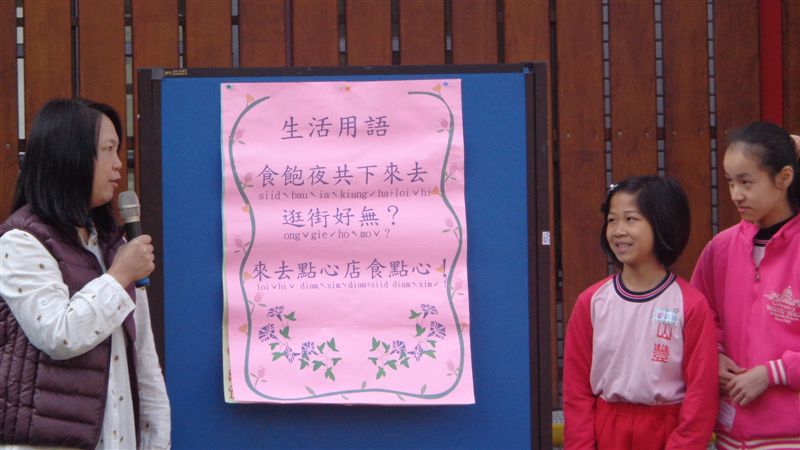 生活用語
食飽夜共下來去
siidˋbauˋiaˋkiungˊha+loiˇhi
逛街好無？
ongˇgieˊhoˋmoˇ?
來去點心店食點心！
loiˇhiˇ diamˋximˋdiam+siid diamˋximˊ!
豐